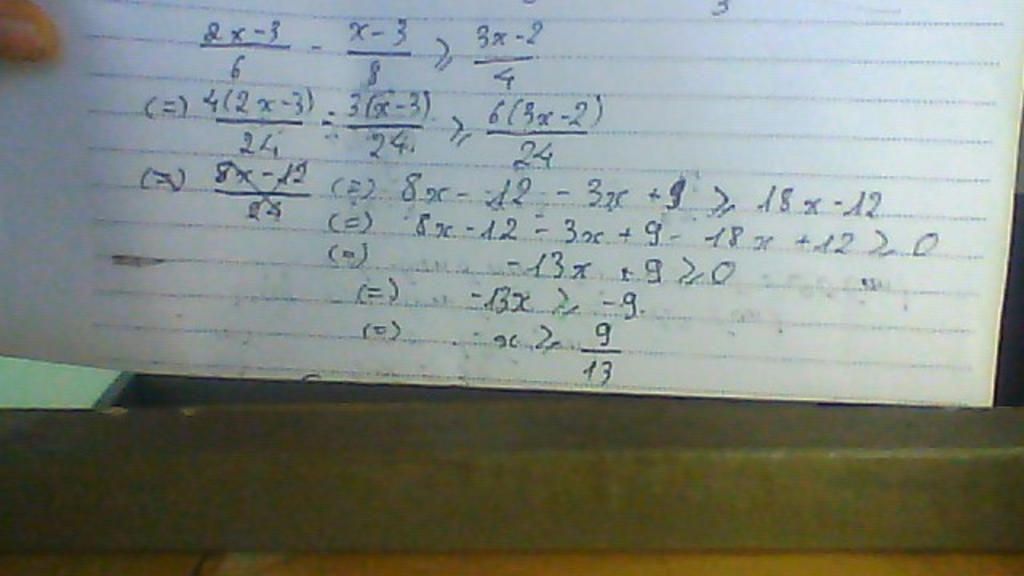 3
(2x-3)/6 - (x-3)/8 ⩾ (3x-2)/4
(=) 4(2x-3)/24 - 3(x-3)/24 ⩾ 6(3x-2)/24
(=) (8x-12)/24 (=) 8x - 12 - 3x + 9 ⩾ 18x - 12
(=) 8x - 12 - 3x + 9 - 18x + 12 ⩾ 0
(=) -13x + 9 ⩾ 0
(=) -13x ⩾ -9
(=) x ⩾ 9/13